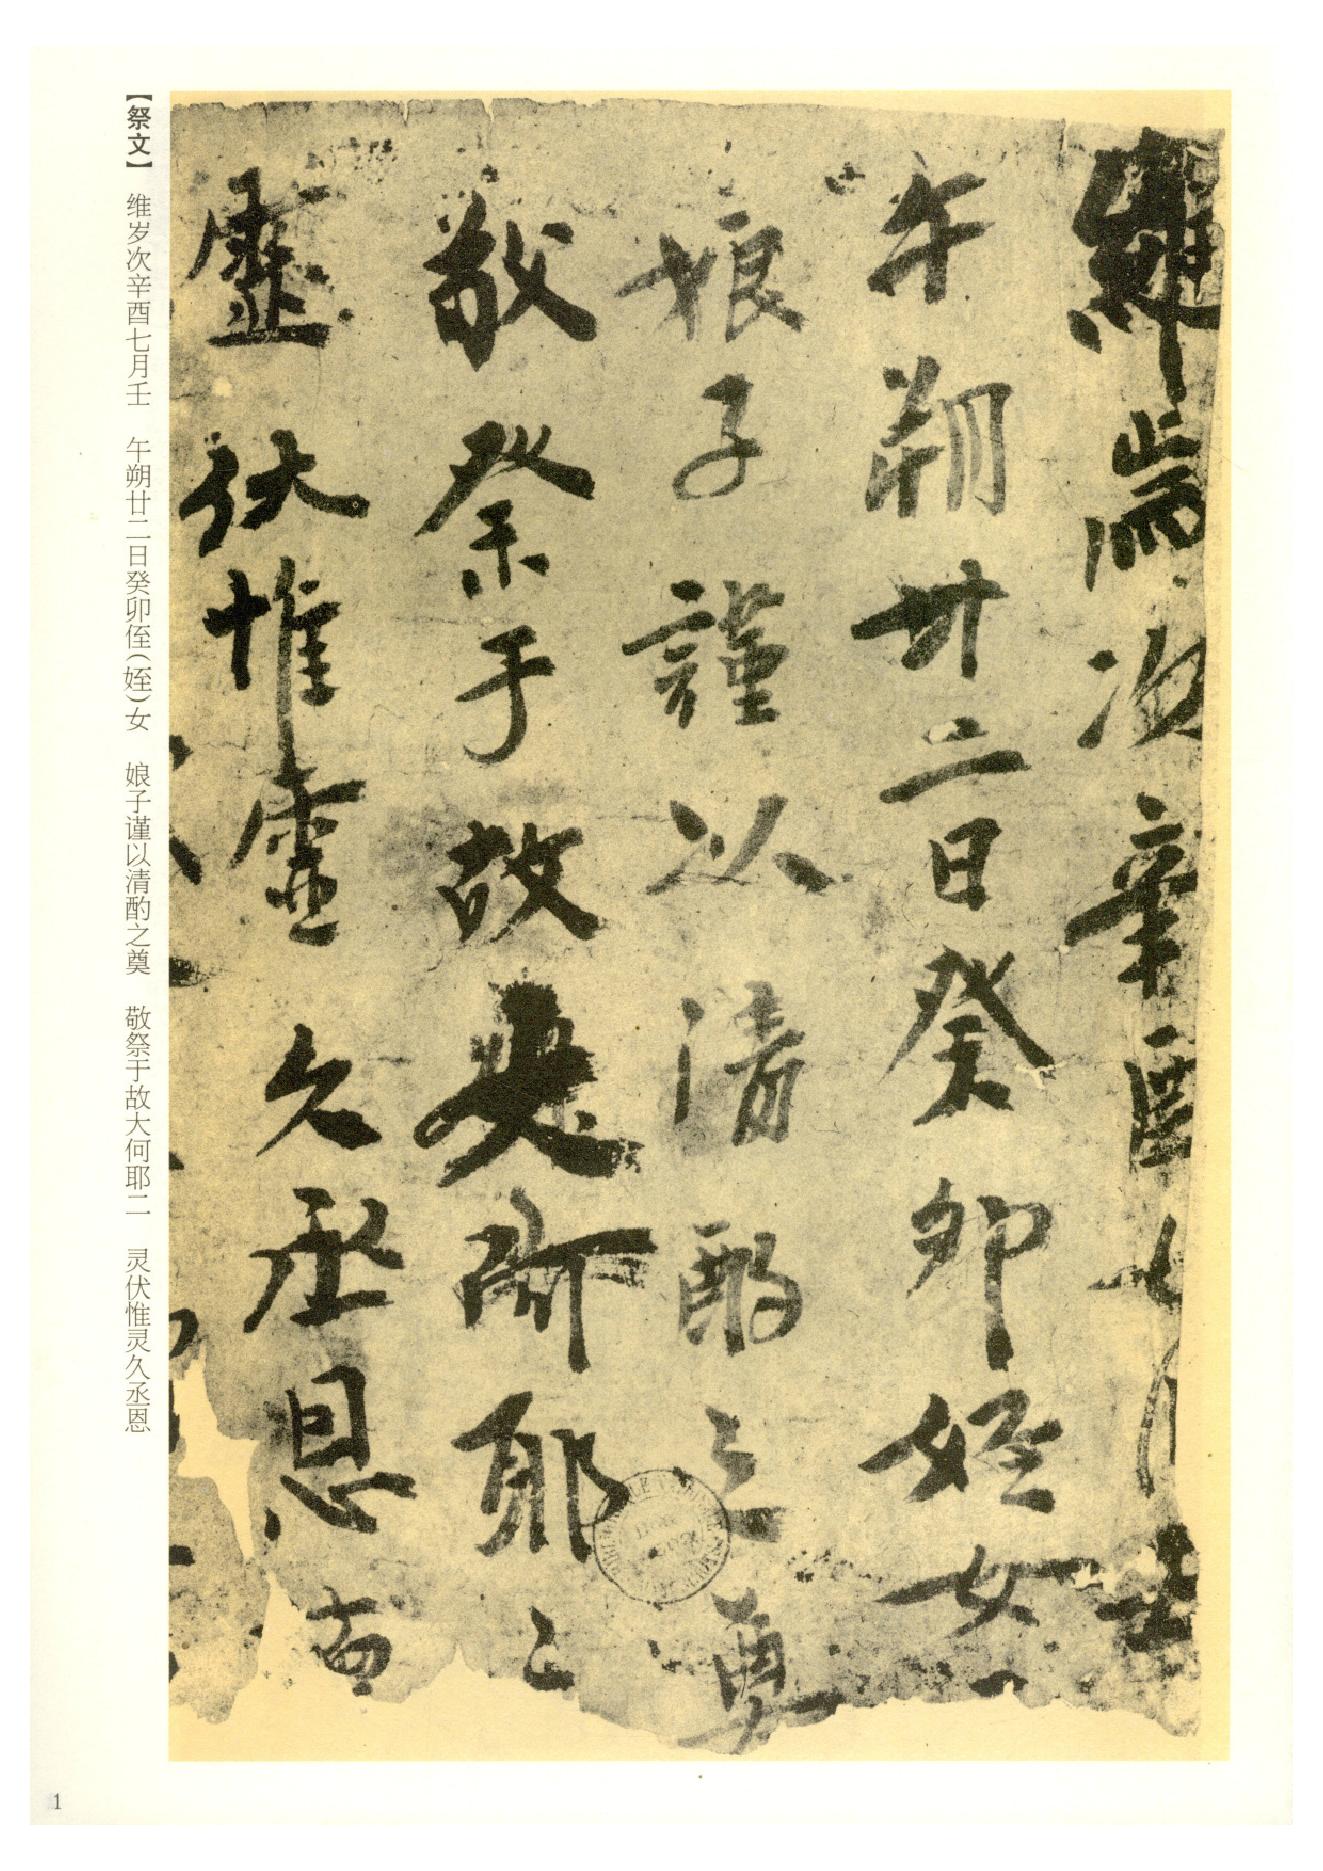 維歲次辛酉七月壬
午朔廿二日癸卯姪女
娘子謹以清酌之奠
敬祭于故耶
靈伏惟靈久丞恩
【祭文】 维岁次辛酉七月壬 午朔廿二日癸卯侄(姪)女 娘子谨以清酌之奠 敬祭于故大何耶二 灵伏惟灵久丞恩
1